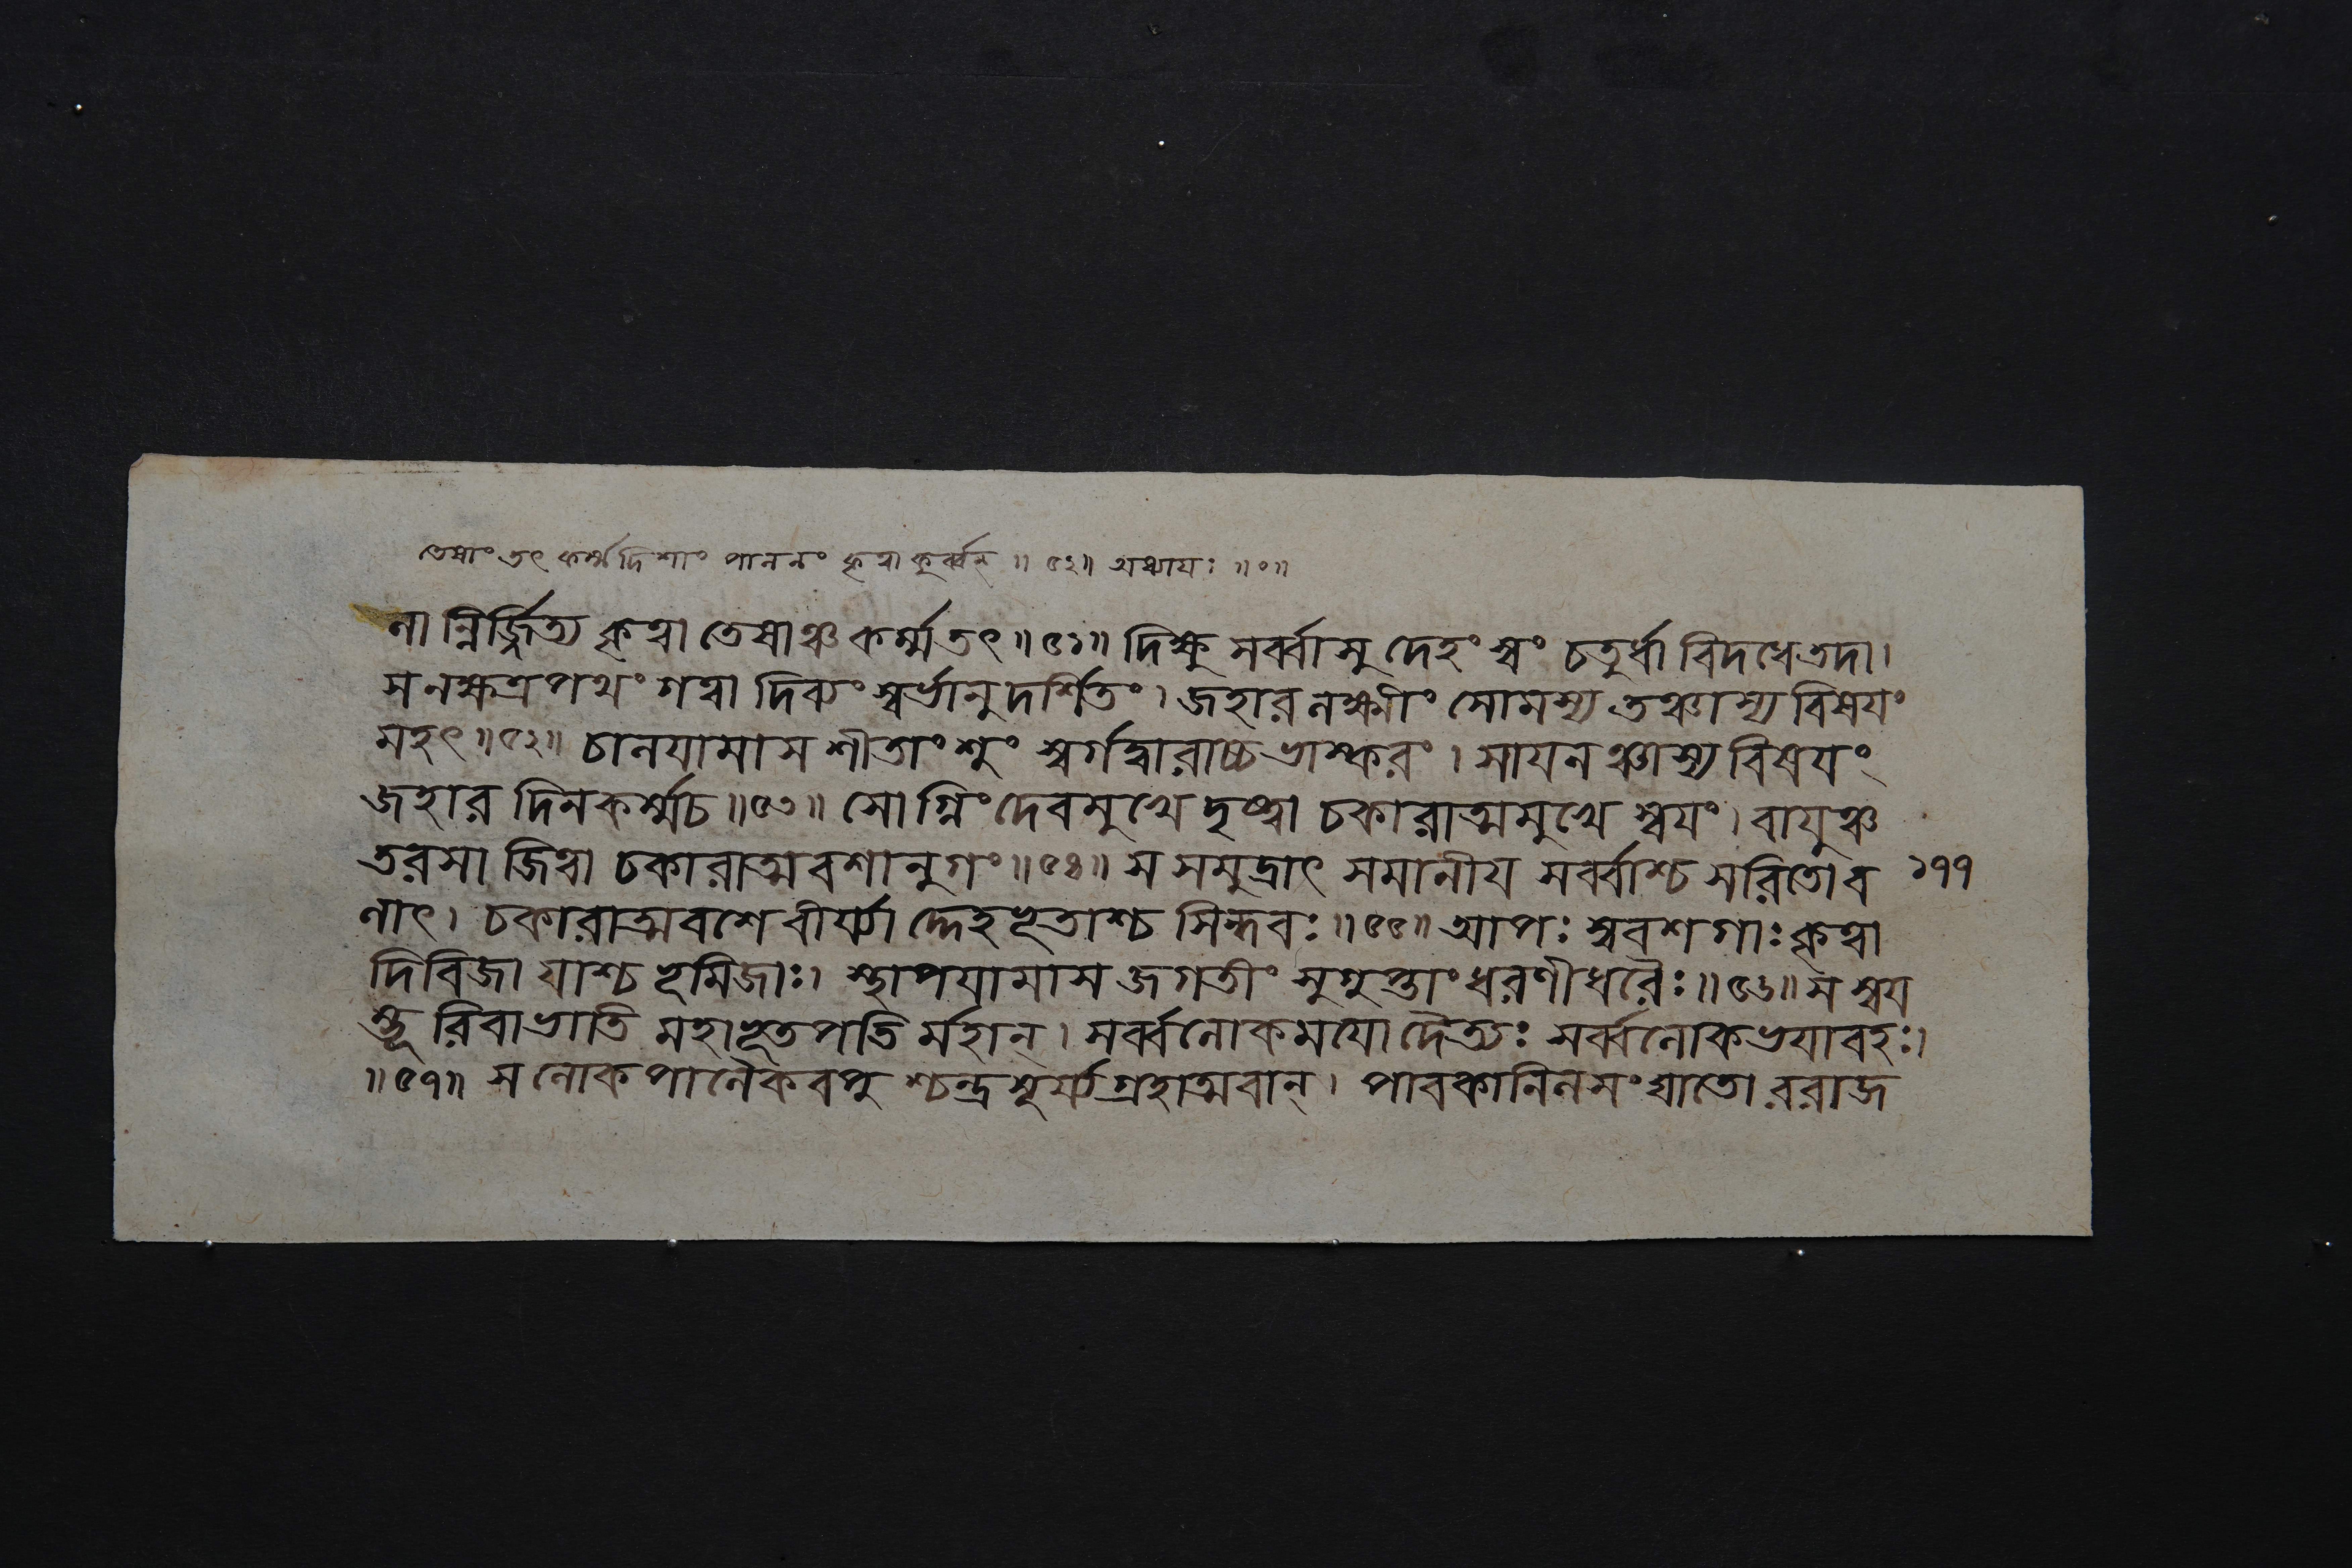 তেষাং তৎ কর্ম্ম দিশাং পালনং হৃত্বা কুর্ব্বন্ ॥ ৫২॥ অধ্যায়ঃ ॥०॥
লা ন্নির্জ্জিত্য কৃত্বা তেষাঞ্চ কর্ম্মতৎ॥৫১॥ দিক্ষু সর্ব্বাসু দেহং স্বং চতুর্ধা বিদধে তদা।
স নক্ষত্রপথং গত্বা দিব্যং স্বর্ভানুদর্শিতং। জহার লক্ষ্মীং সোমস্য তঞ্চাস্য বিষয়ং
মহৎ॥৫২॥ চালয়ামাস শীতাংশুং স্বর্গদ্বারাচ্চ ভাস্করং। সায়নঞ্চাস্য বিষয়ং
জহার দিনকর্ম্মচ॥৫৩॥ সোগ্নিং দেবমুখে দৃষ্ট্বা চকারাত্মমুখে স্বয়ং। বায়ুঞ্চ
তরসা জিত্বা চকারাত্মবশানুগং॥৫৪॥ স সমুদ্রাৎ সমানীয় সর্ব্বাশ্চ সরিতো ব ১৭৭
লাৎ। চকারাত্মবশে বীর্য্যাদ্দেহভূতাশ্চ সিন্ধবঃ॥৫৫॥ আপঃ স্ববশগাঃ কৃত্বা
দিবিজা যাশ্চ ভূমিজাঃ। স্থাপয়ামাস জগতীং সুগুপ্তাং ধরণীধরৈঃ॥৫৬॥ স স্বয়
ম্ভূরিবাভাতি মহাভূতপতির্মহান্। সর্ব্বলোকময়ো দৈত্যঃ সর্ব্বলোকভয়াবহঃ।
॥৫৭॥ স লোকপালৈকবপু শ্চন্দ্রসূর্য্যগ্রহাত্মবান্। পাবকানিলসংঘাতো ররাজ